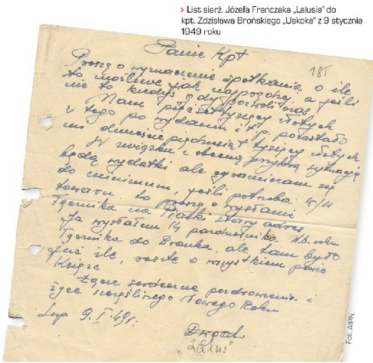 › List sierż. Józefa Franczaka „Lalusia” do
kpt. Zdzisława Brońskiego „Uskoka” z 9 stycznia
1949 roku
Panie Kpt
185
Proszę o wyznaczenie spotkania, o ile
to możliwe jak najprędzej, a jeśli
nie to kiedy i gdzie
Mam tysięcy złotych
z tego po wydaniu i t.p. pozostało
mi dwieście pięćdziesiąt tysięcy złotych
W związku z obecną sytuacją
będą wydatki ale ograniczam się
do minimum, jeśli potrzeba
to proszę o wysłanie
łącznika na Piaski stary adres
Ja wysłałem 14 października
łącznika do Bronka ale tam było
źle, o wszystkiem
Łączę serdeczne pozdrowienia i
życzę szczęśliwego Nowego Roku
9. I. 49 r.
Laluś
Fot. AIPN